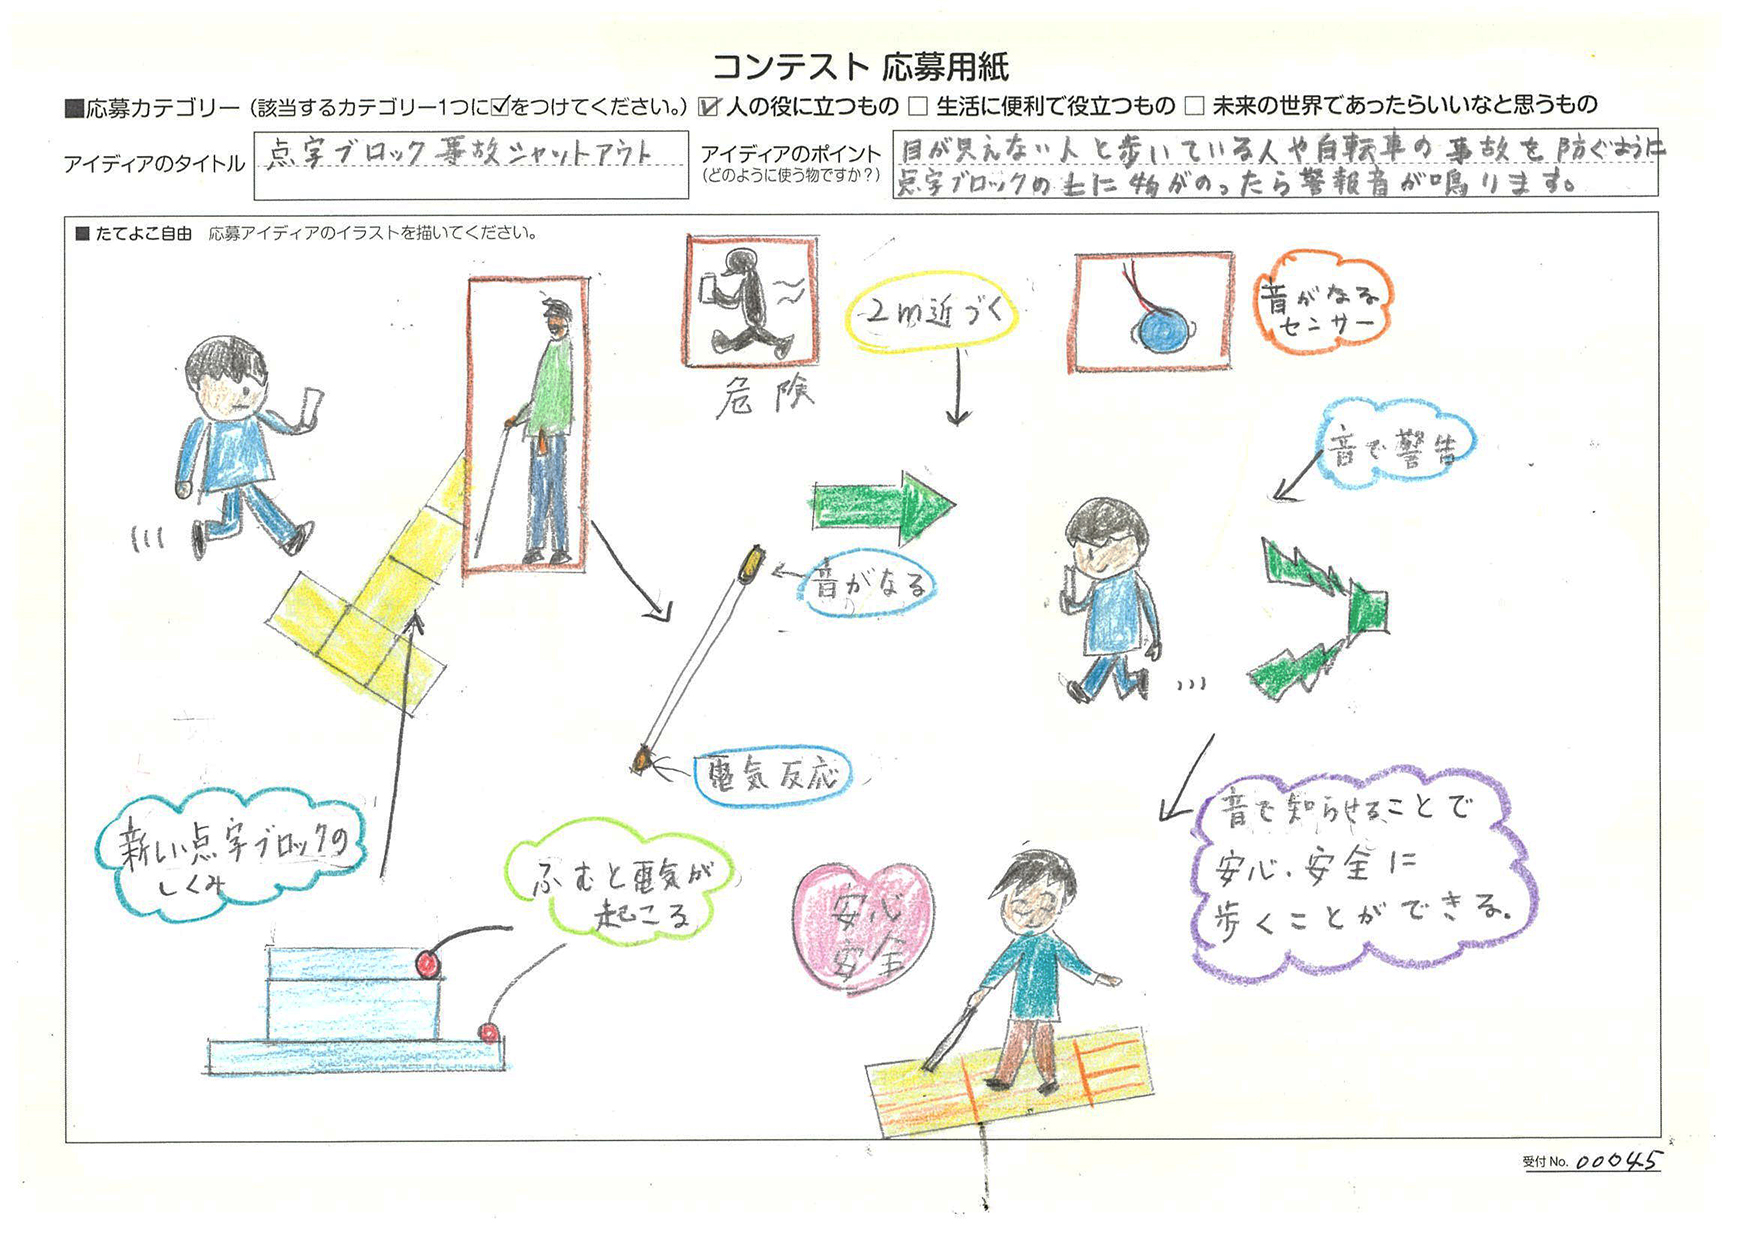 コンテスト 応募用紙
■応募カテゴリー（該当するカテゴリー1つに☑をつけてください。）☑人の役に立つもの □ 生活に便利で役立つもの □ 未来の世界であったらいいなと思うもの
アイディアのタイトル
点字ブロック事故シャットアウト
アイディアのポイント
（どのように使う物ですか？）
目が見えない人と歩いている人や自転車の事故を防ぐように
点字ブロックの上に物がのったら警報音が鳴ります。
■ たてよこ自由 応募アイディアのイラストを描いてください。
危険
2m近づく
音がなる
センサー
音で警告
音がなる
電気反応
新しい点字ブロックの
しくみ
ふむと電気が
起こる
安心
安全
音で知らせることで
安心、安全に
歩くことができる。
受付 No. 00045